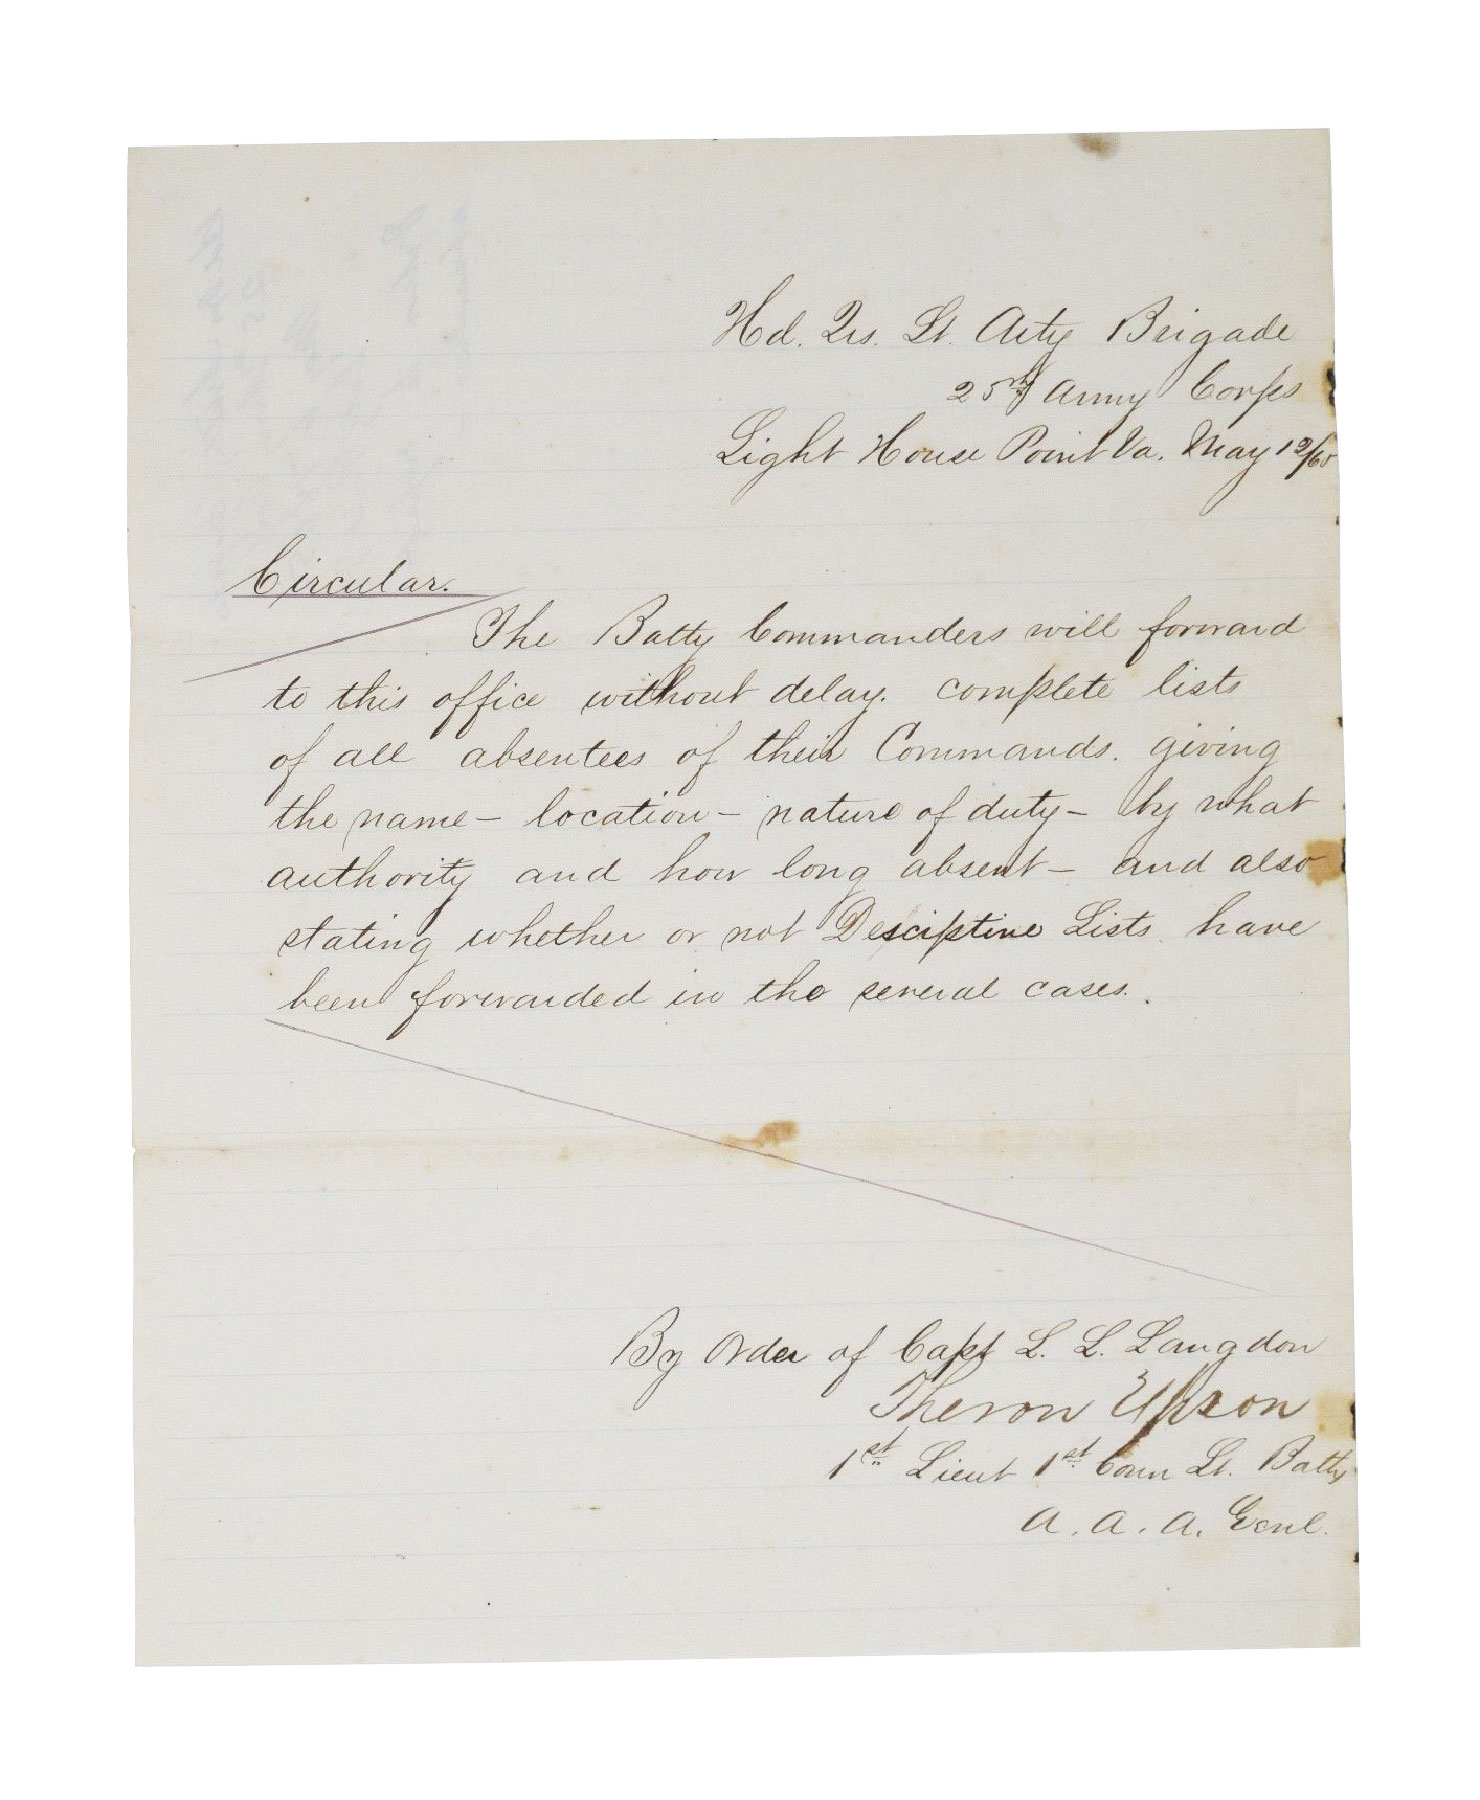 Hd. Qrs. Lt. Arty Brigade
25th Army Corps
Light House Point Va. May 12/65
Circular.
The Batty Commanders will forward
to this office without delay. complete lists
of all absentees of their Commands. giving
the name - location - nature of duty - by what
authority and how long absent - and also
stating whether or not Desciptive Lists have
been forwarded in the several cases.
By Order of Capt L. L. Langdon
Theron Upson
1st Lieut 1st Conn Lt. Batty
A. A. A. Genl.